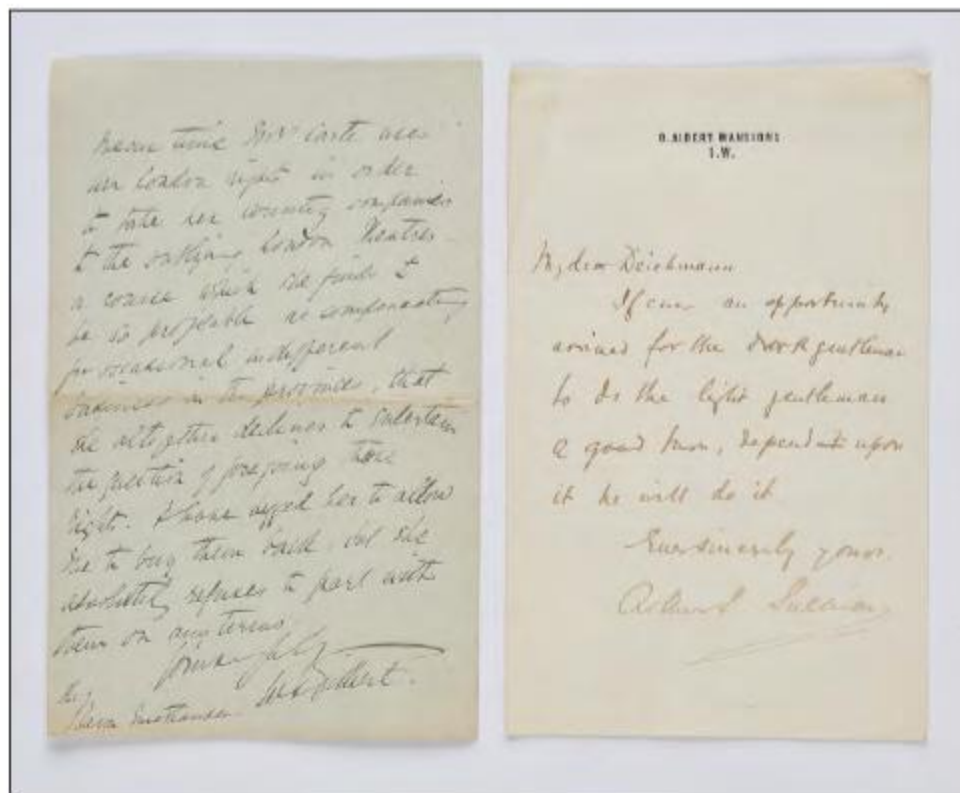 mean time Mrs Carte uses
our London rights in order
to take her country companies
to the outlying London Theatres —
a course which she finds to
be so profitable as compensating
for occasional indifferent
business in the provinces, that
she altogether declines to entertain
the question of foregoing those
rights. I have asked her to allow
me to buy them back, but she
absolutely refuses to part with
them on any terms.
WS Gilbert.
9. ALBERT MANSIONS
S.W.
My dear Deichmann
If ever an opportunity
arrived for the dark gentleman
to do the light gentleman
a good turn, depend upon
it he will do it
Ever sincerely yours.
Arthur Sullivan